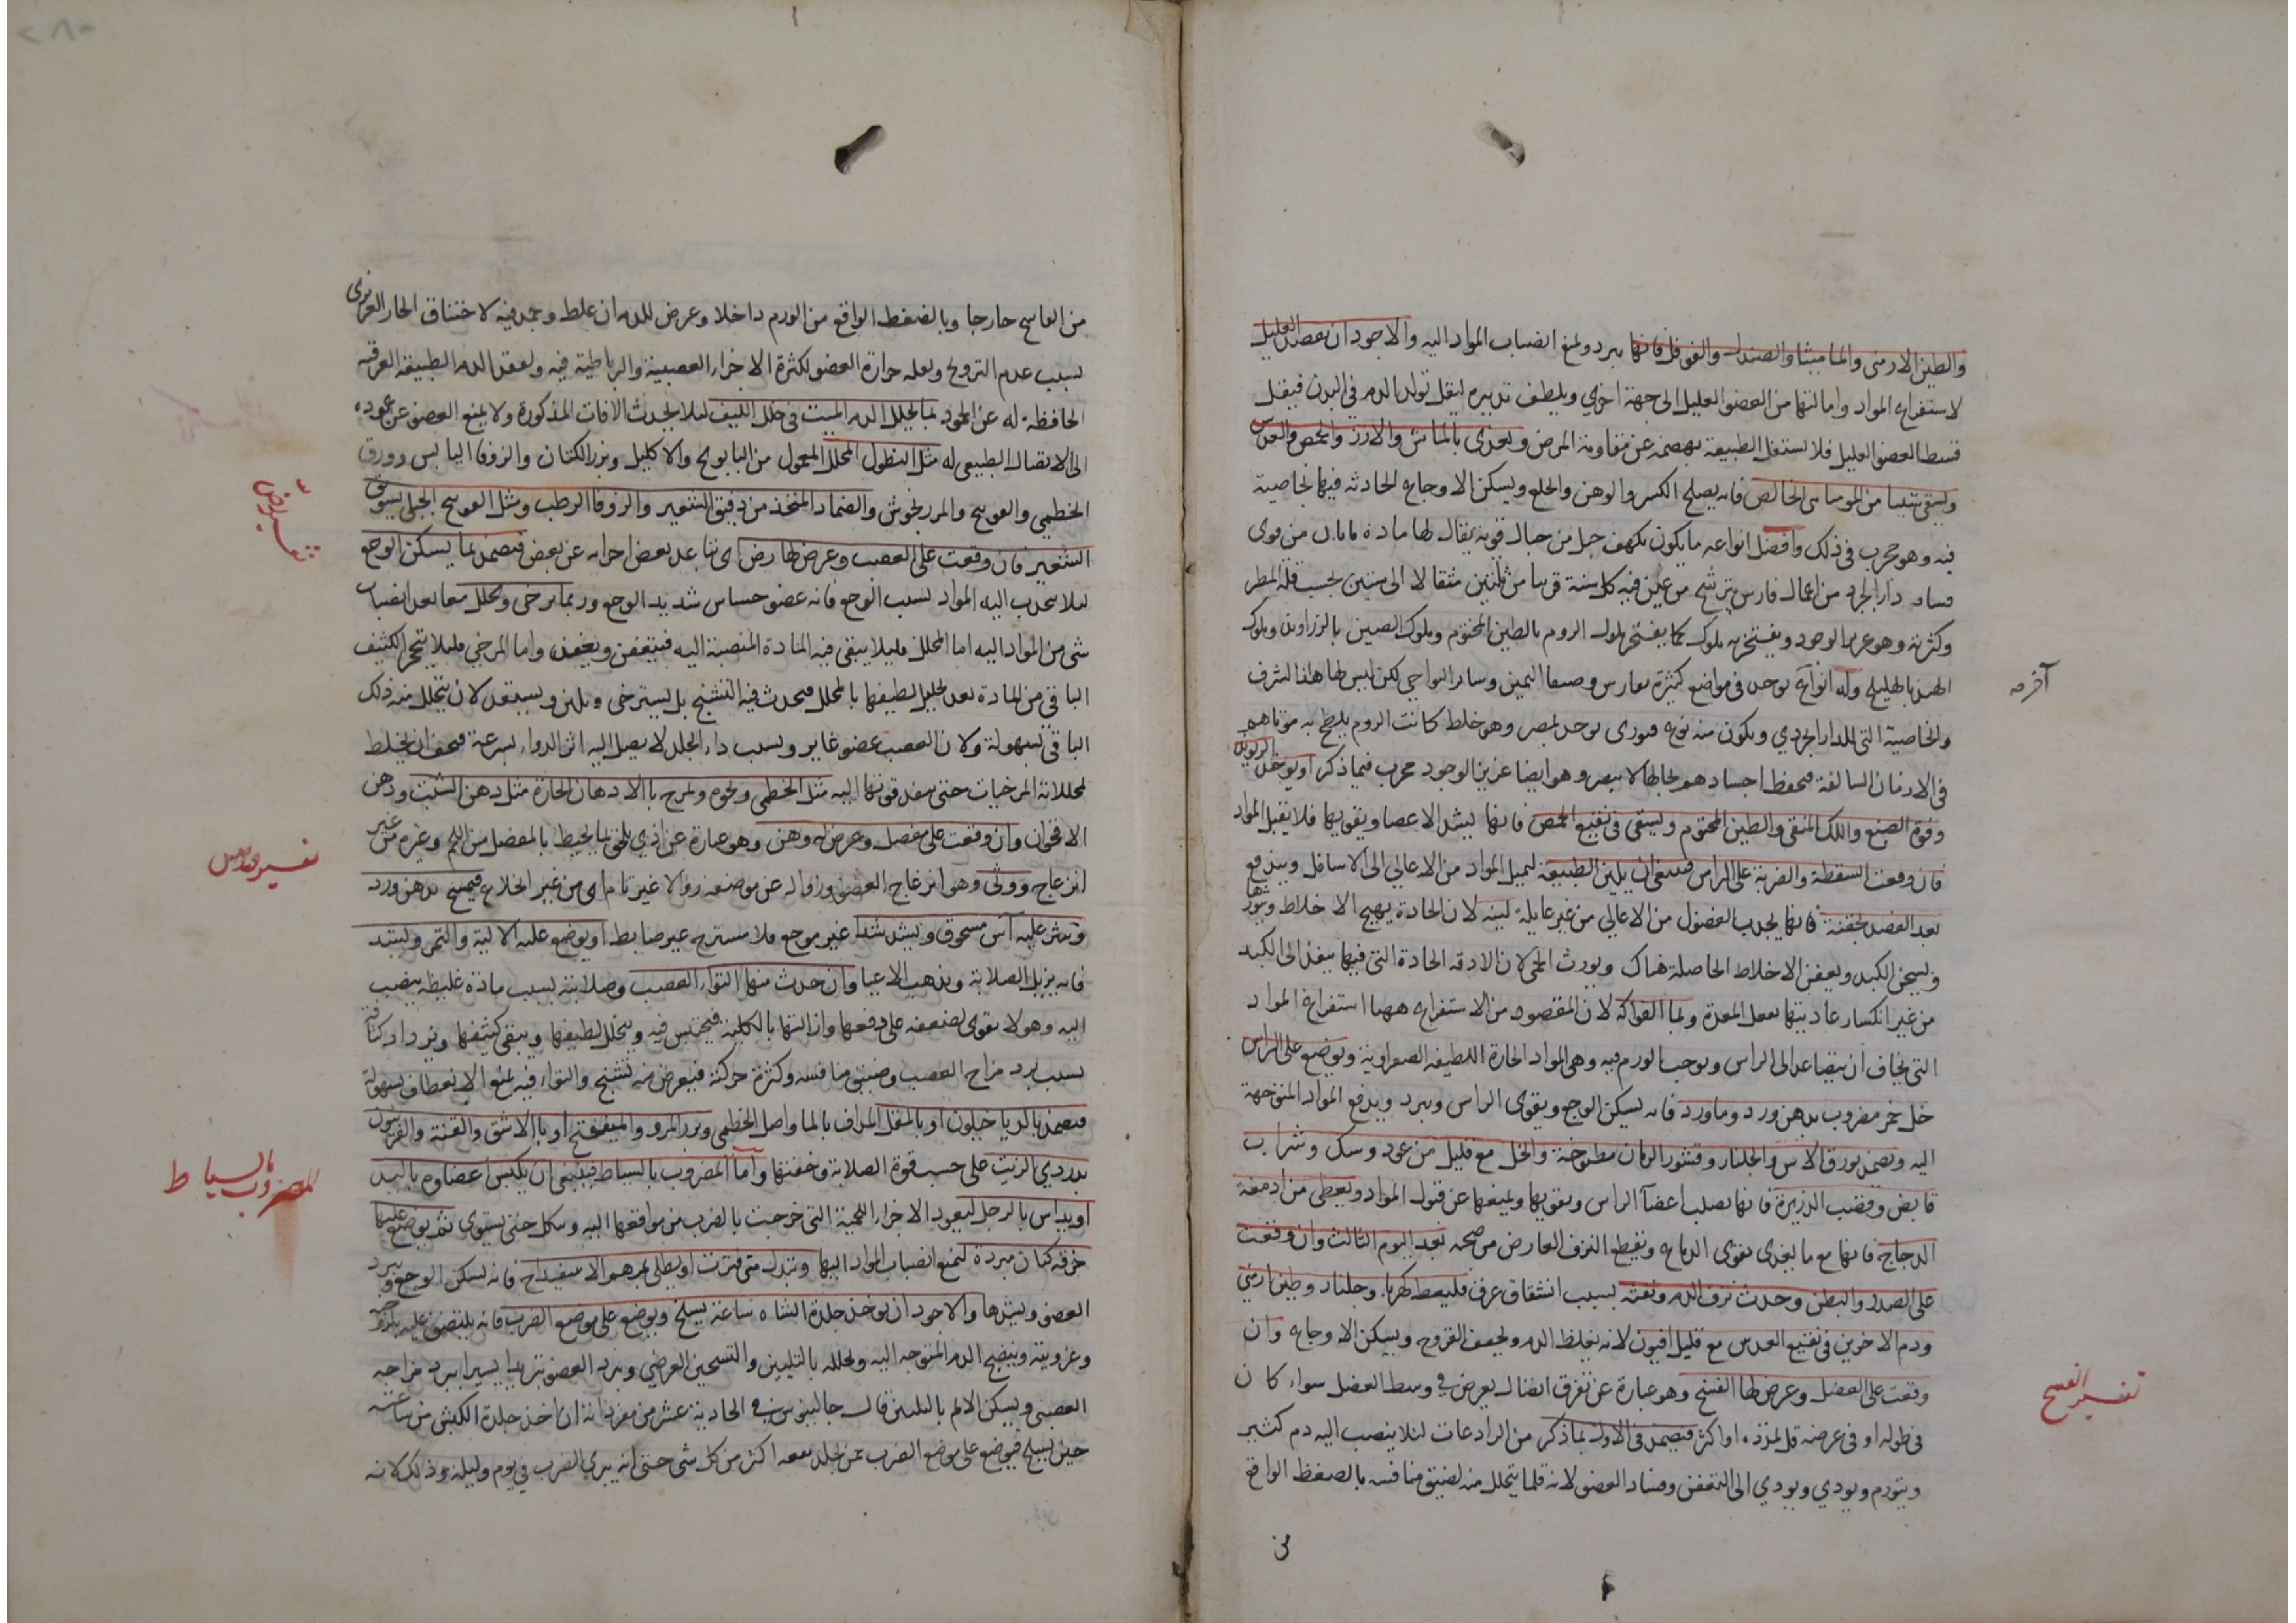 والطين الارمنى والماميثا والصندل والفوفل فانها يبرد ويمنع انصباب المواد اليه والاجود ان يفصد العليل
لاستفراغ المواد وامالتها من العضو العليل الى جهة اخرى ويلطف تدبيره ليقل تولد الدم فى البدن فيقل
قسط العضو العليل فلا يشتغل الطبيعة بهضمه عن مقاومة المرض ويغذى بالماش والارز والحمص والعدس
ويسقى شيئا من الموميائى الخالص فانه يصلح الكسر والوهن والخلع ويسكن الاوجاع الحادثة فيها لخاصية
فيه وهو مجرب فى ذلك وافضل انواعه ما يكون بكهف جبل من جبال قرية يقال لها من قرى
دارابجرد من اعمال فارس يترشح من عين فيه كل سنة قريبا من ثلثين مثقالا الى ستين بحسب قلة المطر
وكثرته وهو عزيز الوجود ويفتخر به ملوك كما يفتخر ملوك الروم بالطين المختوم وملوك الصين بالزراوند وملوك
الهند بالهليلج وله انواع يوجد فى مواضع كثيرة بفارس وصنعا اليمن وساير النواحى لكن ليس لها هذا الشرف
والخاصية التى للدارابجردى ويكون منه نوع قبورى يوجد بمصر وهو خلط كانت الروم يلطخ به موتاهم
فى الازمان السالفة فيحفظ اجسادهم بحالها لا يتغير وهو ايضا عزيز الوجود مجرب فيما ذكر او يؤخذ الريوند
وفوة الصبغ واللك المنقى والطين المختوم ويسقى فى نقيع الحمص فانها يشد الاعضا ويقويها فلا يقبل المواد
فان وقعت السقطة والضربة على الراس فينبغى ان يلين الطبيعة ليميل المواد من الاعالى الى الاسافل ويندفع
بعد الفصد بحقنة فانها يجذب الفضول من الاعالى من غير غايلة لينه لان الحادة يهيج الاخلاط ويثورها
ويسخن الكبد ويعفن الاخلاط الحاصلة هناك ويورث الحمى لان الادوية الحادة التى فيها ينفذ الى الكبد
من غير انكسار عاديتها بفعل المعدة وبماء الفواكه لان المقصود من الاستفراغ ههنا استفراغ المواد
التى يخاف ان يتصاعد الى الراس ويوجب الورم فيه وهى المواد الحارة اللطيفة الصفراوية ويوضع على الراس
خل خمر مضروب بدهن ورد وماورد فانه يسكن الوجع ويقوى الراس ويبرد ويدفع المواد المتوجهة
اليه ويضمد بورق الاس والجلنار وقشور الرمان مطبوخة والخل مع قليل من عود وسك وشراب
قابض وقصب الذريرة فانها يصلب اعضا الراس ويقويها ويمنعها عن قبول المواد ويعطى من ادمغة
الدجاج فانها مع ما يغذى يقوى الدماغ ويقطع النزف العارض من بعد اليوم الثالث وان وقعت
على الصدر والبطن وحدث نزف الدم ونفثه بسبب انشقاق عرق فليعط كهربا وجلنار وطين ارمنى
ودم الاخوين فى نقيع العدس مع قليل افيون لانه يغلظ الدم ويجفف القروح ويسكن الاوجاع وان
وقعت على العضل وعرض لها الفسخ وهو عبارة عن تفرق اتصال يعرض فى وسط العضل سواء كان
فى طوله او فى عرضه اكثر فيضمد فى الاول بما ذكر من الرادعات لئلا ينصب اليه دم كثير
ويتورم ويودى الى التعفن وفساد العضو لانه قلما يتحلل منه لضيق منافسه بالضغط الواقع
من
تفسير الفسخ
من الفاسخ خارجا وبالضغط الواقع من الورم داخلا وعرض للدم ان غلظ وجمد فيه لاختناق الحار الغريزى
بسبب عدم الترويح وقلة حرارة العضو لكثرة الاجزاء العصبية والرباطية فيه ولفقد الدم الطبيعة العرقية
الحافظة له عن الجمود بما يحلل الدم الميت فى خلل الليف لئلا يحدث الافات المذكورة ولا يمنع العضو عن عوده
الى الاتصال الطبيعى له مثل النطول المحلل المعمول من البابونج والاكليل وبزر الكتان والزوفا اليابس وورق
الخطمى والفوتنج والمرزنجوش والضماد المتخذ من دقيق الشعير والزوفا الرطب ومثل الفوتنج الجبلى بسويق
الشعير فان وقعت على العصب وعرض لها رض اى تباعد بعض اجزائه عن بعض فيضمد بما يسكن الوجع
لئلا ينجذب اليه المواد بسبب الوجع فانه عضو حساس شديد الوجع وربما يرخى ويحلل معا بعد انصباب
شى من المواد اليه اما المحلل فليلا يبقى فيه المادة المنصبة اليه فيتعفن واما المرخى فليلا يتحجر الكثيف
الباقى من المادة بعد تحليل لطيفها بالمحلل فيحدث فيه التشنج بل يسترخى ويلين ويستعد لان يتحلل منه ذلك
الباقى بسهولة ولان العصب عضو غاير وبسبب لا يصل اليه اثر الدواء بسرعة فيجب ان يخلط
بمحللاته المرخيات حتى ينفذ قوتها اليه مثل الخطمى ونحوه ويمزج بالادهان الحارة مثل دهن الشبت ودهن
الاقحوان وان وقعت على مفصل وعرض له وهن وهو عبارة عن اذى يلحق بما يحيط بالمفصل من اللحم وغيره من غير
انزعاج ووثى وهو انزعاج العضو وزواله عن موضعه زوالا غير تام اى من غير انخلاع فيمسح بدهن ورد
وينثر عليه آس مسحوق ويشد شدا غير موجع فلا مسترخ غير ضابط او يوضع عليه الالية والتمر ويشد
فانه يزيل الصلابة ويذهب الاعيا وان حدث منها التواء العصب وصلابته بسبب مادة غليظة ينصب
اليه وهو لا يقوى لضعفه على دفعها وازالتها بالكلية فيحتبس فيه ويتحلل لطيفها ويبقى كثيفها ويزداد كثافة
بسبب برد مزاج العصب وضيق منافسه وكثرة حركته فيعرض منه تشنج والتواء فيه يمنع الانعطاف بسهولة
فيضمد بالدياخيلون او بالمقل المداف بالما واصل الخطمى وبزر المرو والميفختج او بالاشق والقنة والفربيون
بدردى الزيت على حسب قوة الصلابة وخفتها واما المضروب بالسياط فينبغى ان يكبس اعضاوه باليد
او يداس بالرجل ليعود الاجزاء اللحمية التى خرجت بالضرب من مواقعها اليه وسكل حتى يستوى ثم يوضع عليها
خرقة كتان مبردة ليمنع انصباب المواد اليها ويبدل متى فترت او يطلى بمرهم الاسفيداج فانه يسكن الوجع ويبرد
العضو ويشدها والاجود ان يؤخذ جلدة الشاة ساعة يسلخ ويوضع على موضع الضرب فانه يلتصق عليه
وغرويته وينضج الدم المتوجه اليه ويحلله بالتليين والتسخين العرضى ويبرد العضو تبريدا يسيرا ببرد مزاجه
العصبى ويسكن الالم بالتليين قال جالينوس فى الحادية عشر من مفرداته ان اخذ جلدة الكبش من ساعته
حين يسلخ فيوضع على موضع الضرب ممن جلد نفعه اكثر من كل شى حتى انه يبرى الضرب فى يوم وليلة وذلك لانه
المضروب بالسياط